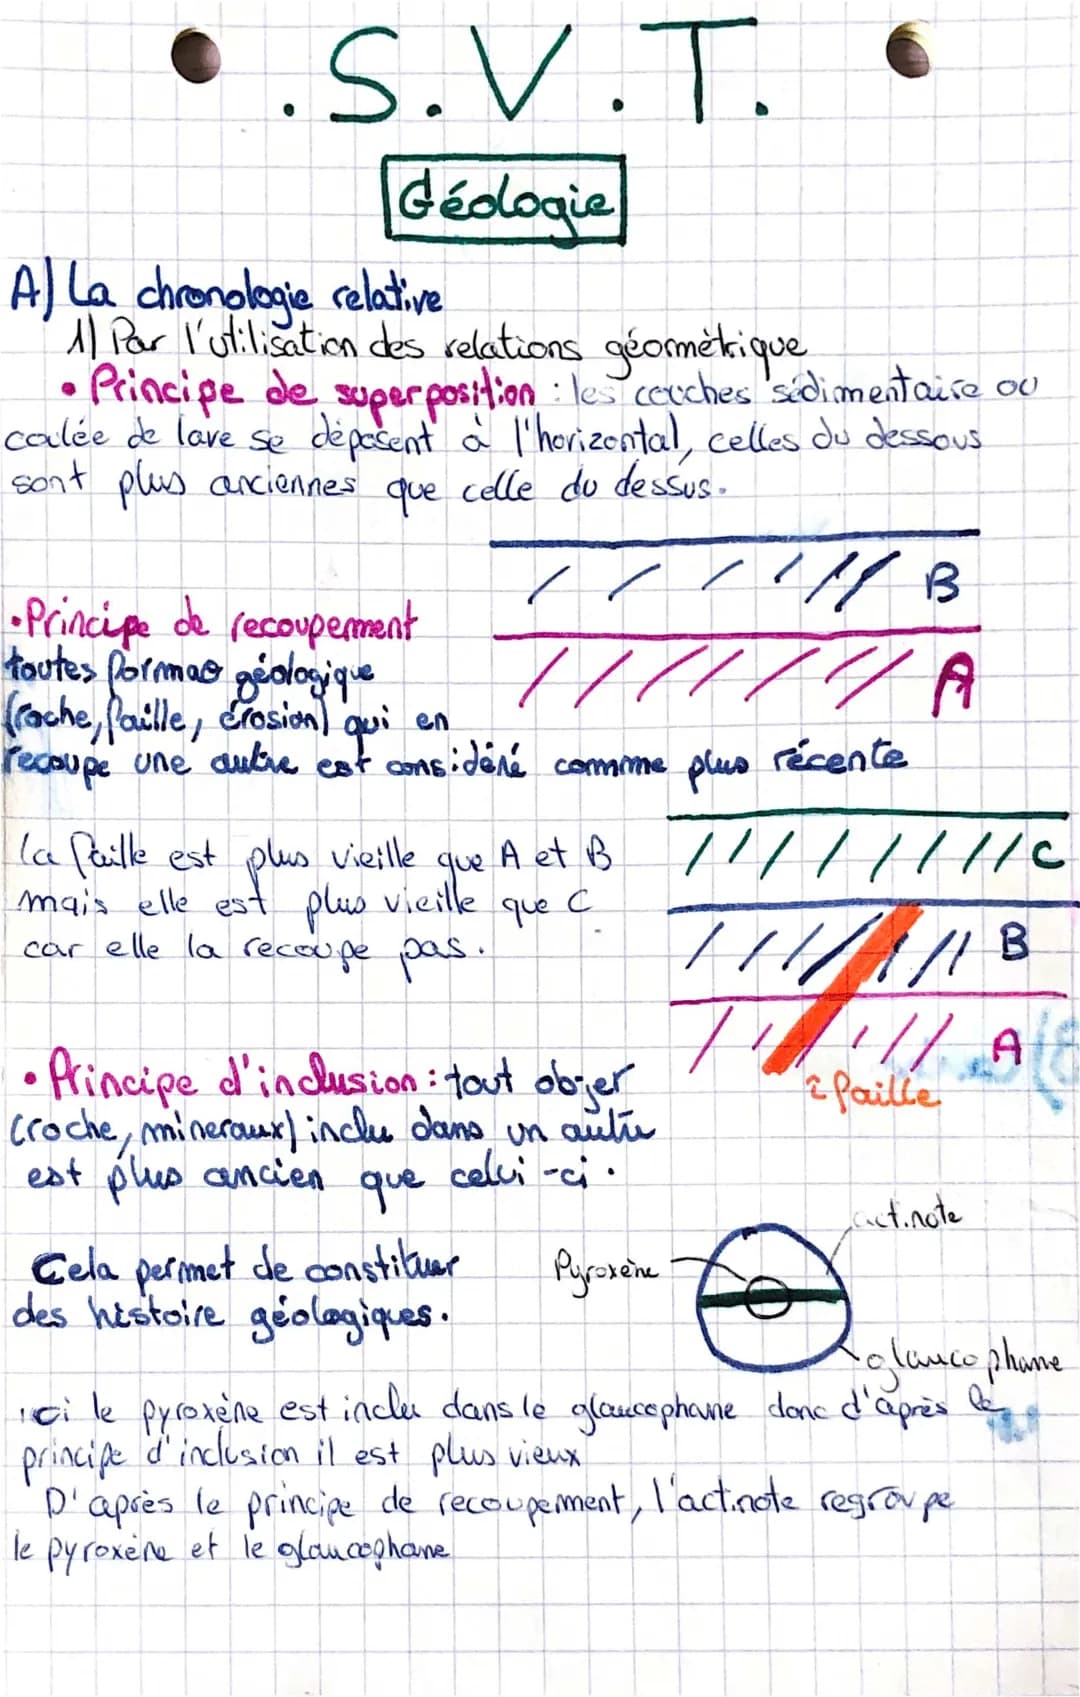 . S. V. T.
Géologie
A) La chronologie relative
1) Par l'utilisation des relations géométrique
• Principe de superposition : les couches sédimentaire ou
coulée de lave se déposent à l'horizontal, celles du dessous
sont plus anciennes que celle du dessus.
B
A
• Principe de recoupement
toutes formao géologique
(roche, faille, érosion) qui en
recoupe une autre est considéré commme plus récente
la faille est plus vieille que A et B
mais elle est plus vieille que C
car elle la recoupe pas.
C
B
A
faille
• Principe d'inclusion : tout objer
(roche, mineraux) inclu dans un autre
est plus ancien que celui-ci.
Cela permet de constituer
des histoire géologiques.
actinote
Pyroxène
glaucophane
ici le pyroxène est inclu dans le glaucophane donc d'après le
principe d'inclusion il est plus vieux
D'après le principe de recoupement, l'actinote regroupe
le pyroxène et le glaucophane